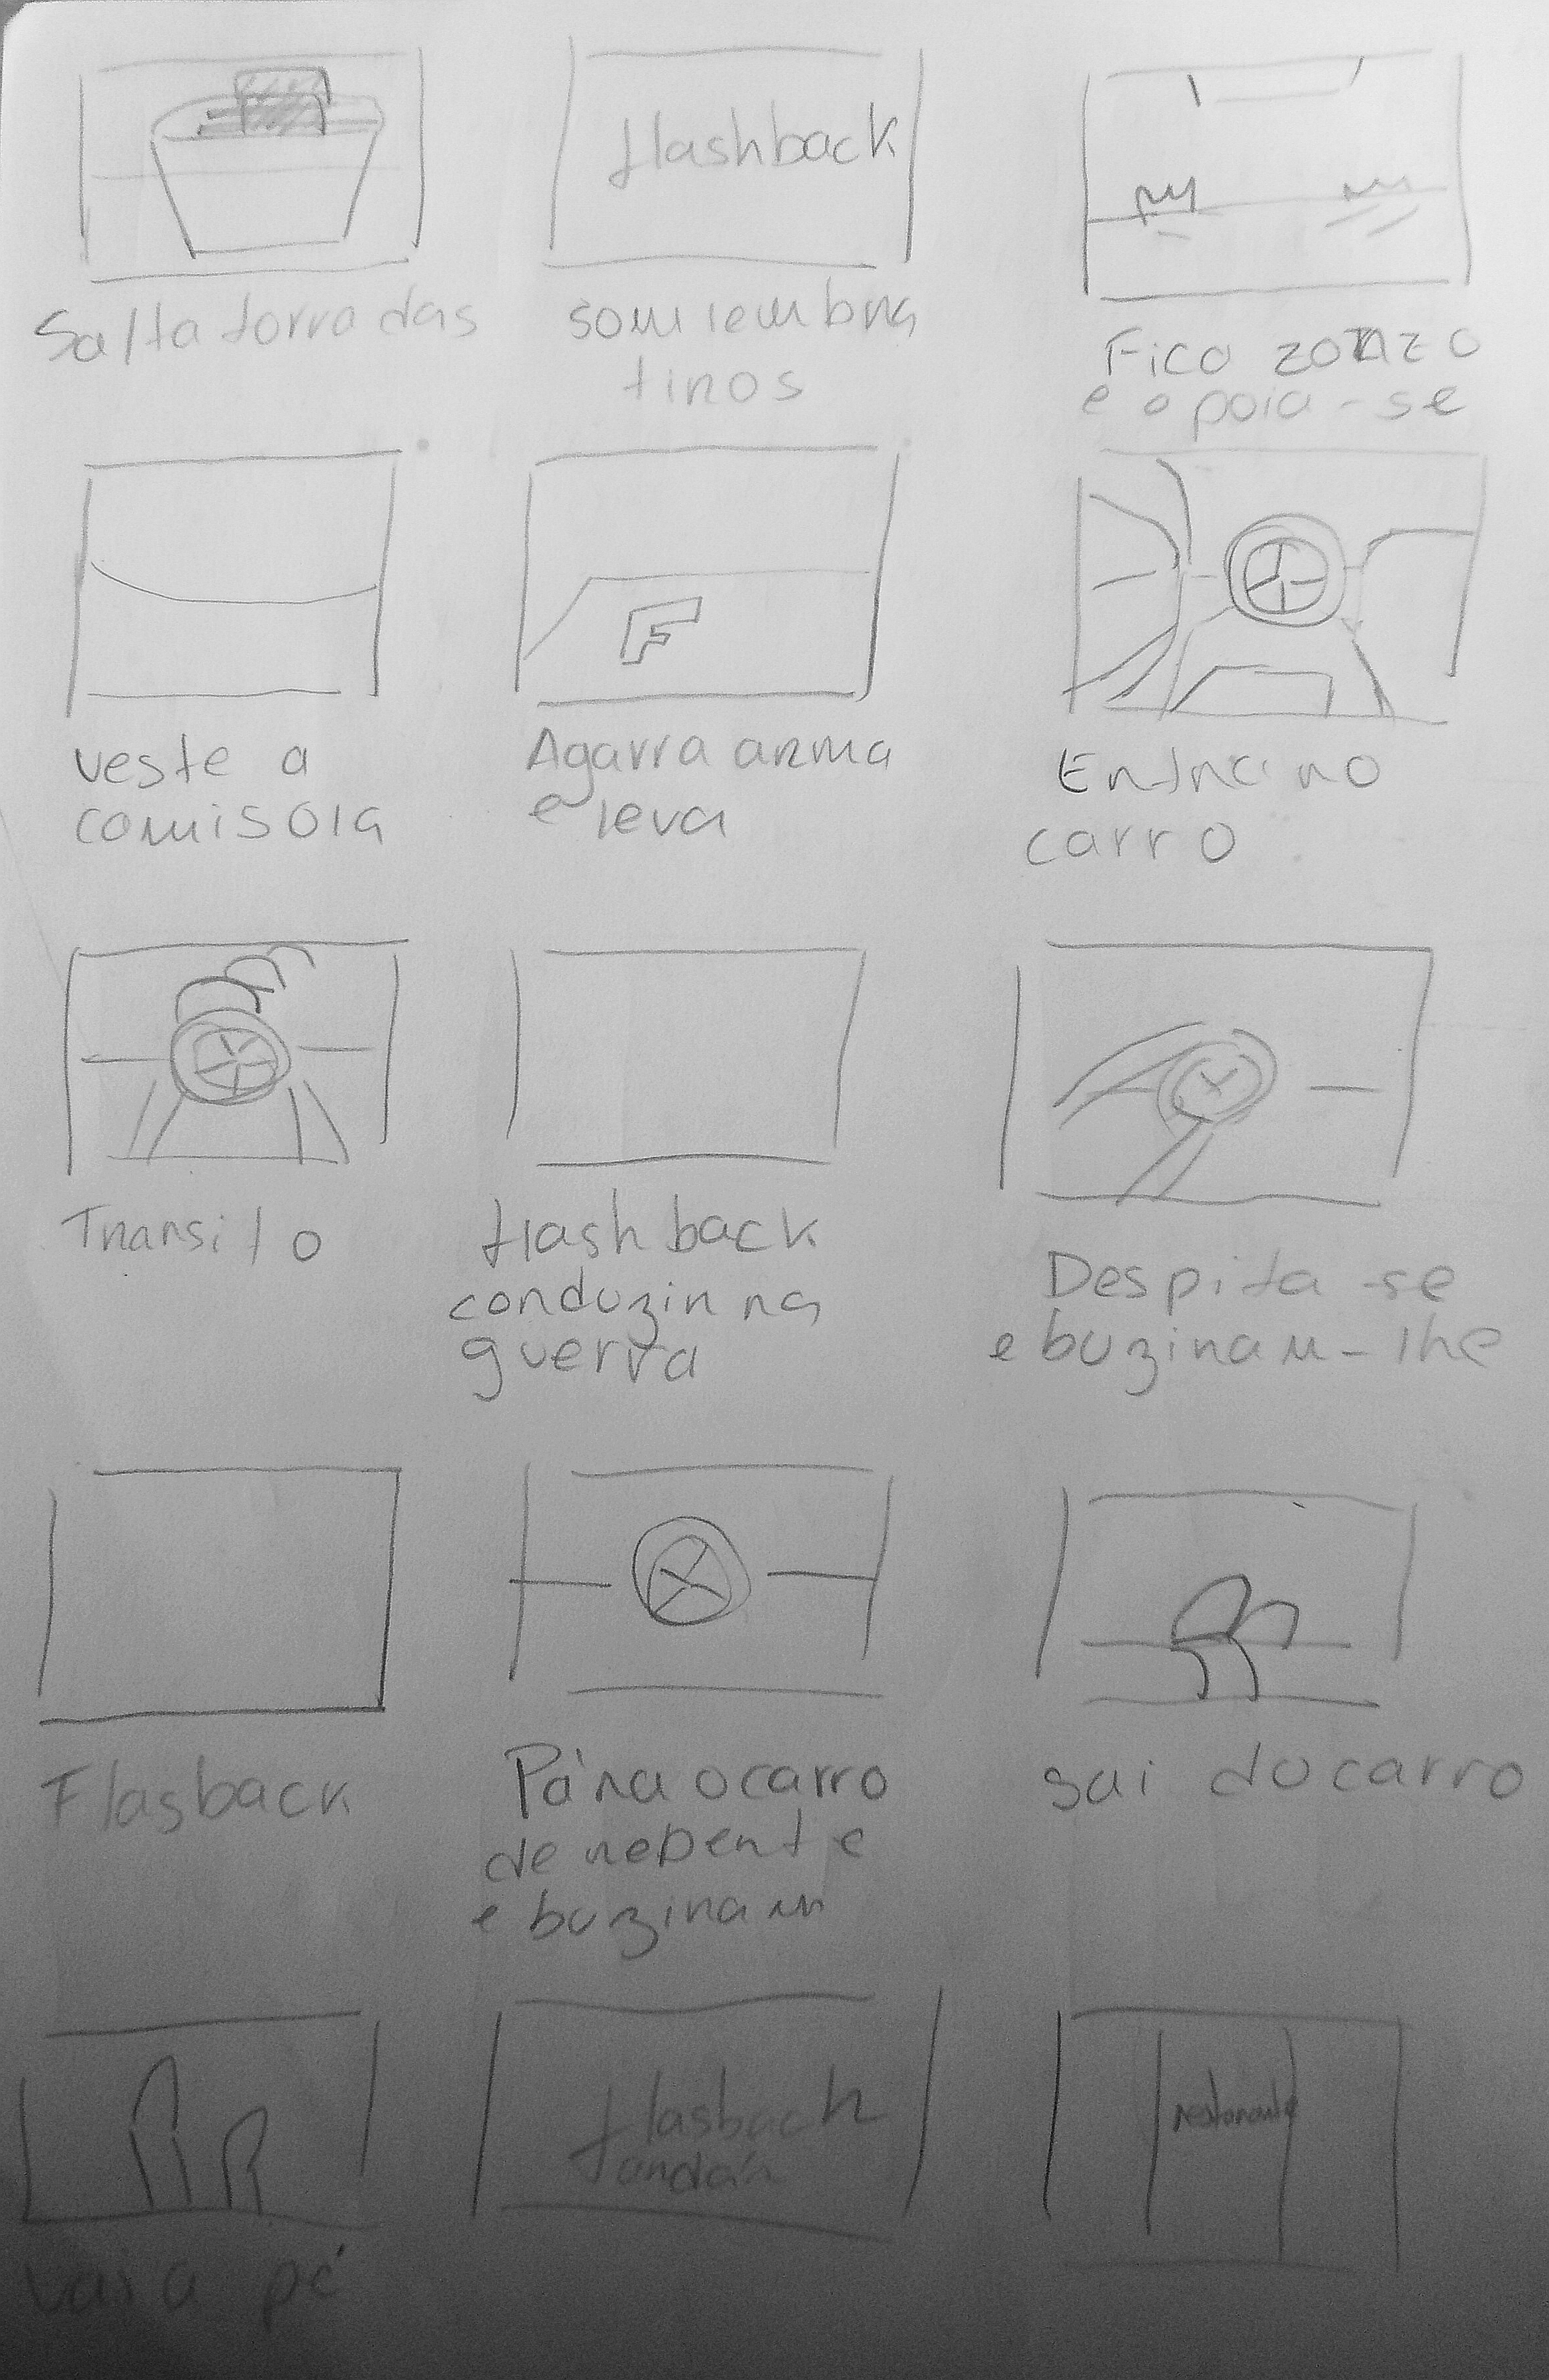 Salta torradas
flashback
som lembra
tiros
Fico zonzo
e apoia-se
veste a
camisola
Agarra arma
e leva
Entra no
carro
Transito
flashback
conduzir na
guerra
Despita-se
e buzinam-lhe
Flasback
Pára o carro
de repente
e buzinam
sai do carro
vai a pé
flasback
andar
restaurante